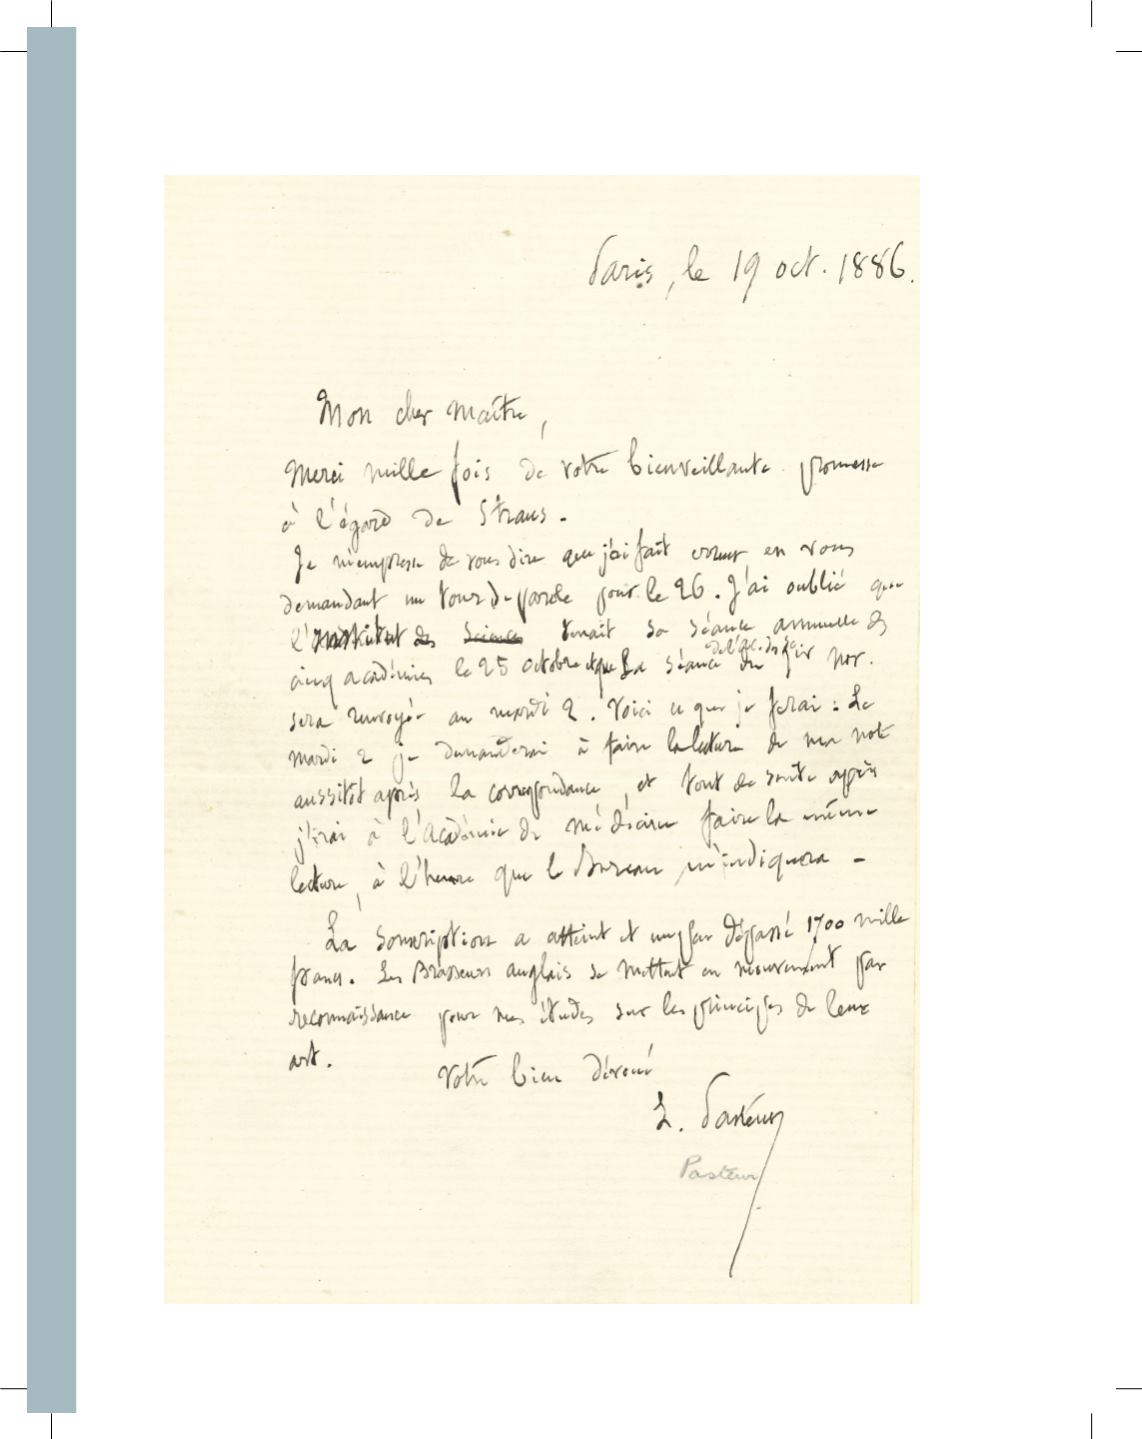 Paris, le 19 oct. 1886.
Mon cher Maître,
Merci mille fois de votre bienveillante promesse
à l'égard de Straus.
Je m'empresse de vous dire que j'ai fait erreur en vous
demandant un tour de parole pour le 26. J'ai oublié que
l'Institut des Sciences tenait sa séance annuelle des
cinq académies le 25 octobre et que la séance de l'Ac. des Sc. du 1er nov.
sera renvoyée au mardi 2. Voici ce que je ferai : Le
mardi 2 je demanderai à faire la lecture de ma note
aussitôt après la correspondance, et tout de suite après
j'irai à l'Académie de Médecine faire la même
lecture, à l'heure que le Bureau m'indiquera -
La Souscription a atteint et un peu dépassé 1700 mille
francs. Les Brasseurs anglais se mettent en mouvement par
reconnaissance pour mes études sur les principes de leur
art.
Votre bien dévoué
L. Pasteur
Pasteur